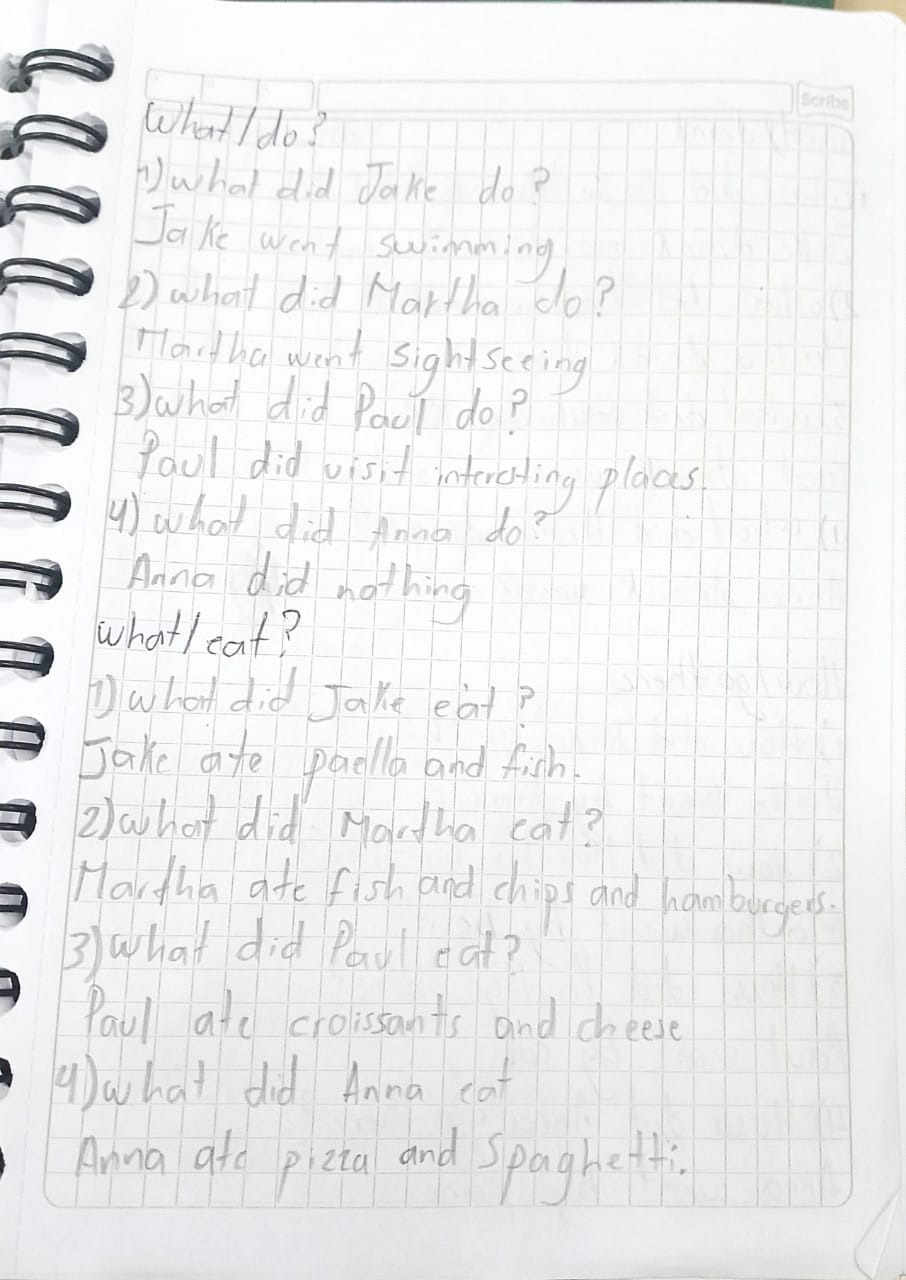 Scribe
What/do?
1) what did Jake do?
Jake went swimming
2) what did Martha do?
Martha went sightseeing
3) what did Paul do?
Paul did visit interesting places.
4) what did Anna do?
Anna did nothing
what/eat?
1) what did Jake eat?
Jake ate paella and fish.
2) what did Martha eat?
Martha ate fish and chips and hamburgers.
3) what did Paul eat?
Paul ate croissants and cheese
4) what did Anna eat
Anna ate pizza and Spaghetti.